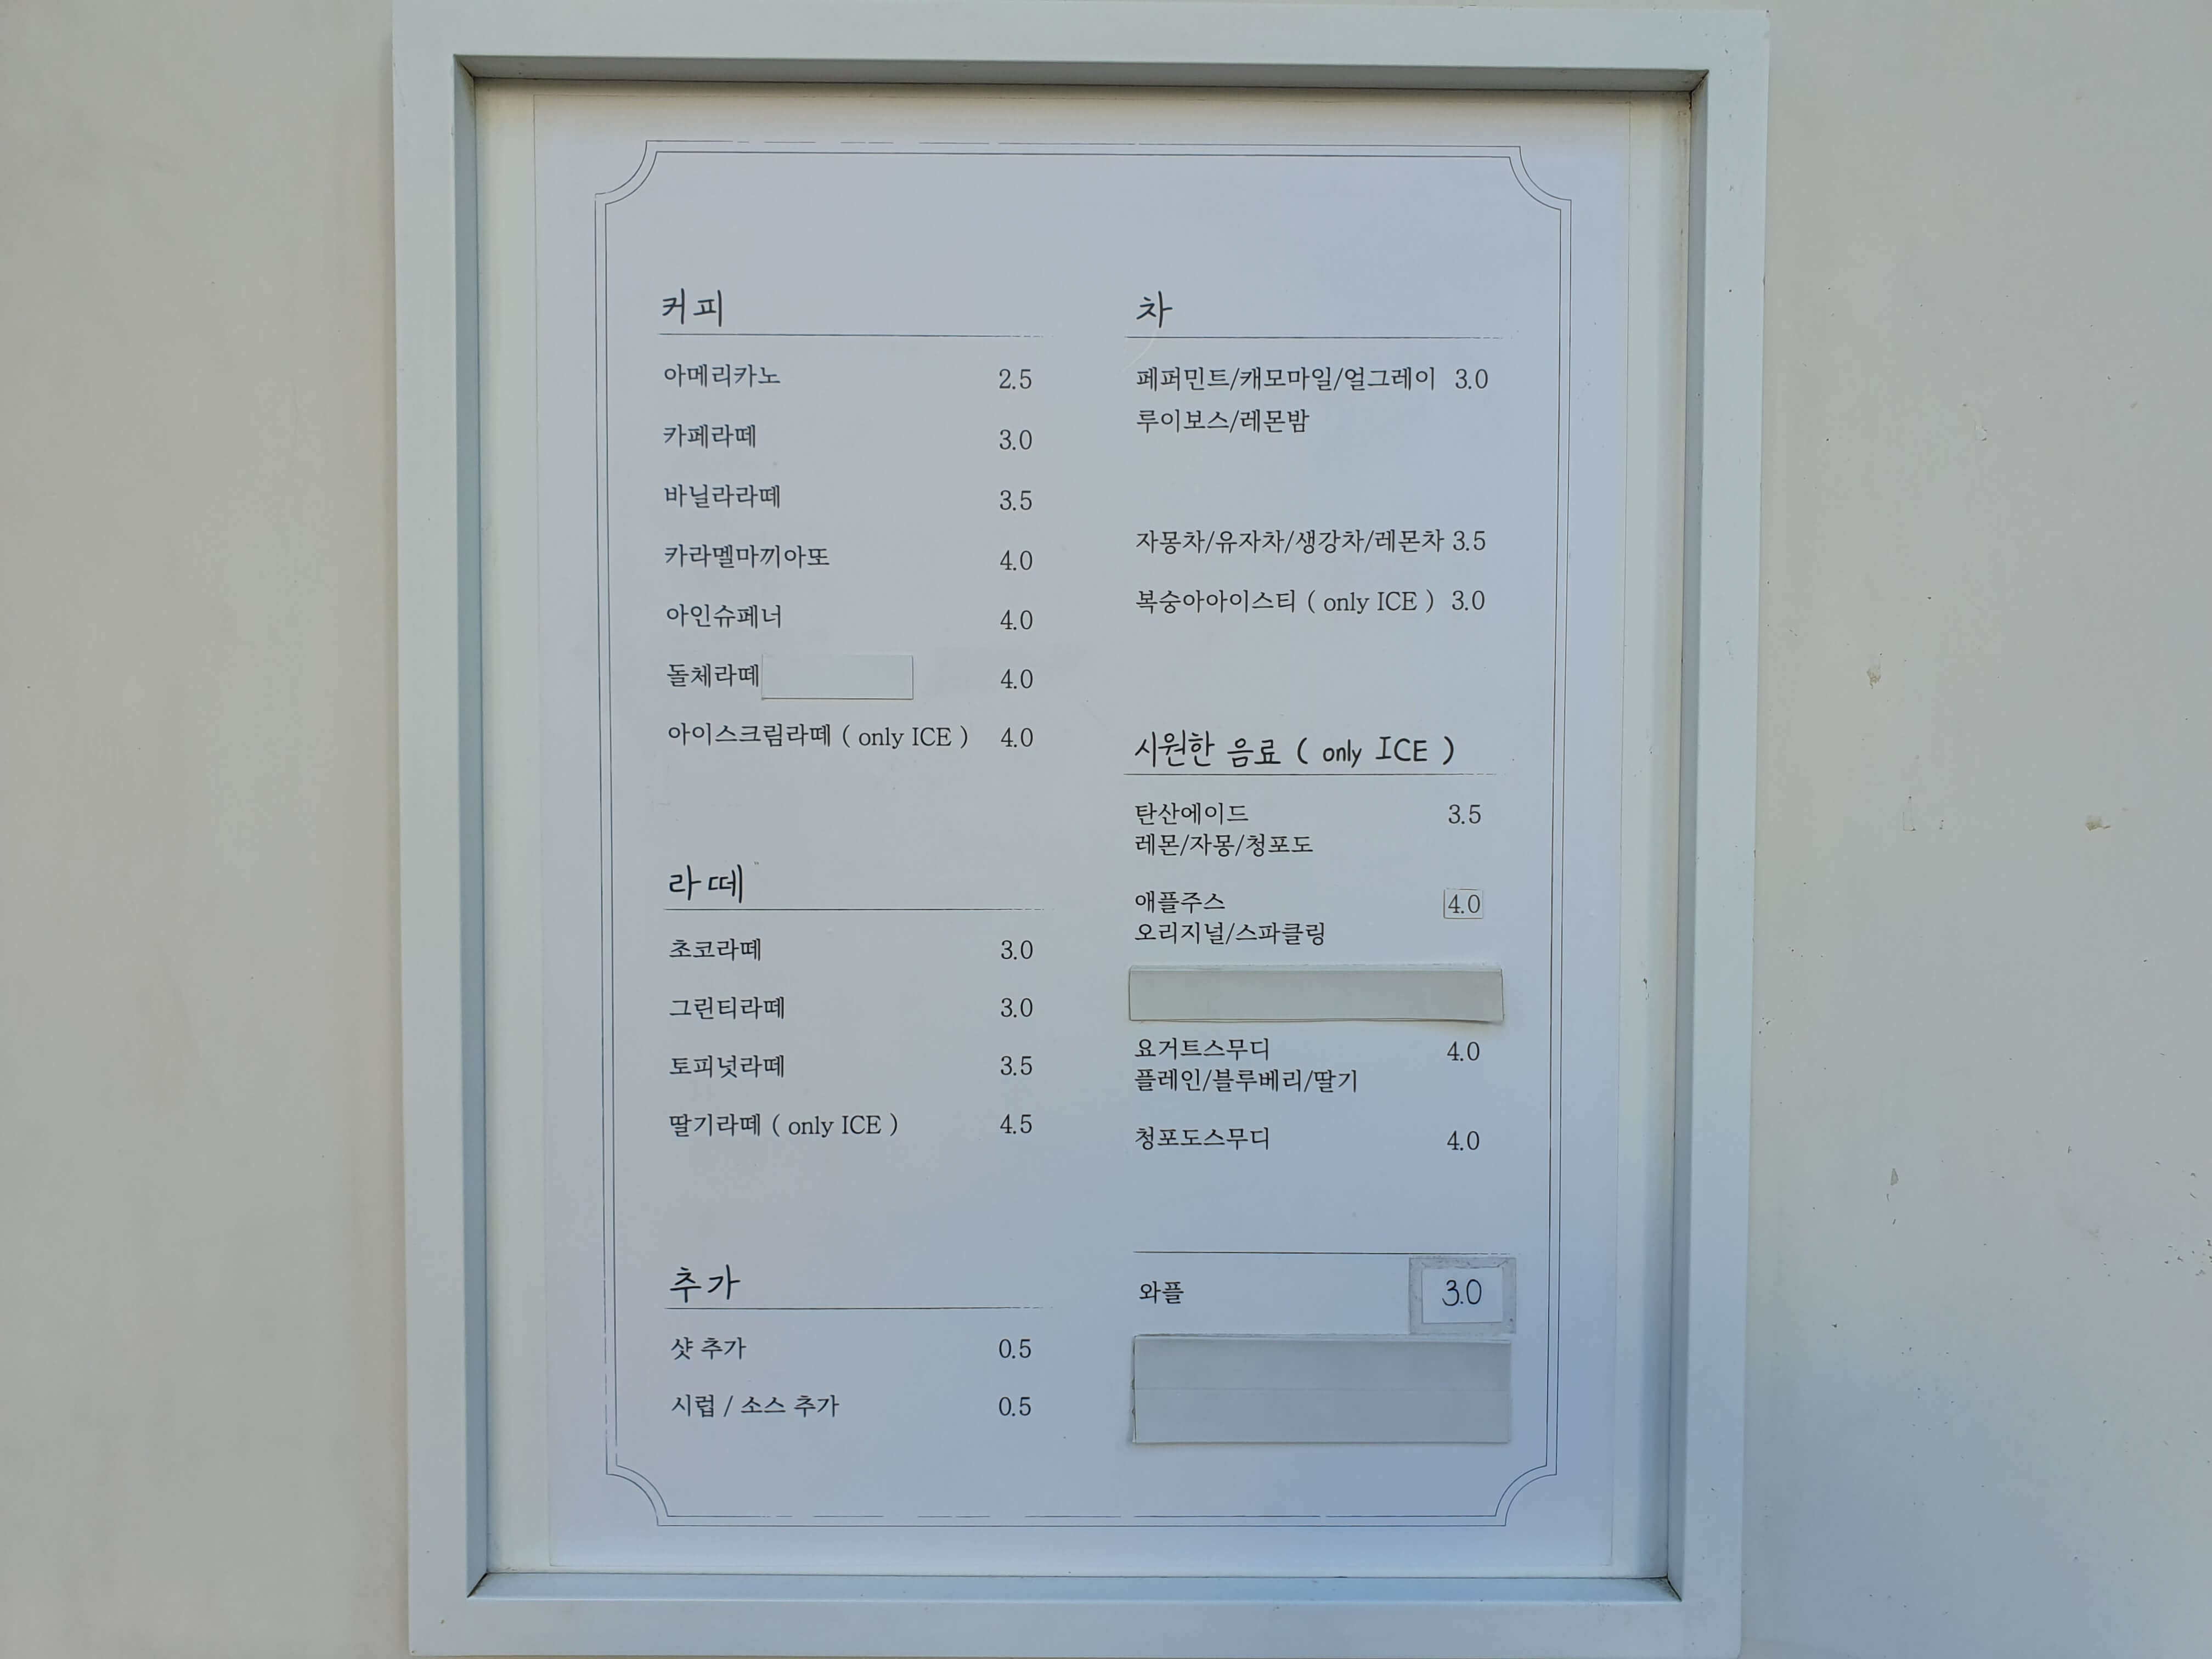 커피
아메리카노 2.5
카페라떼 3.0
바닐라라떼 3.5
카라멜마끼아또 4.0
아인슈페너 4.0
돌체라떼 4.0
아이스크림라떼 ( only ICE ) 4.0
라떼
초코라떼 3.0
그린티라떼 3.0
토피넛라떼 3.5
딸기라떼 ( only ICE ) 4.5
추가
샷 추가 0.5
시럽 / 소스 추가 0.5
차
페퍼민트/캐모마일/얼그레이 3.0
루이보스/레몬밤
자몽차/유자차/생강차/레몬차 3.5
복숭아아이스티 ( only ICE ) 3.0
시원한 음료 ( only ICE )
탄산에이드 3.5
레몬/자몽/청포도
애플주스 4.0
오리지널/스파클링
요거트스무디 4.0
플레인/블루베리/딸기
청포도스무디 4.0
와플 3.0